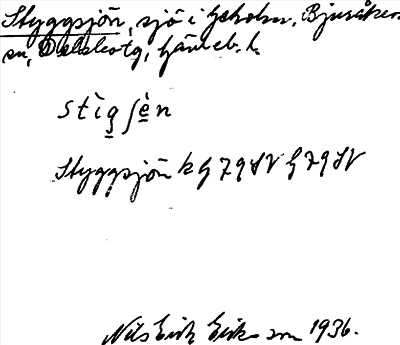 Styggsjön, sjö i Hskolm, Bjuråker
sn, Delsbotg, Gävleb. l.
stìg ʃèn
Styggsjön k G 79 SV G 79 SV
Nils Erik Eriksson 1936.